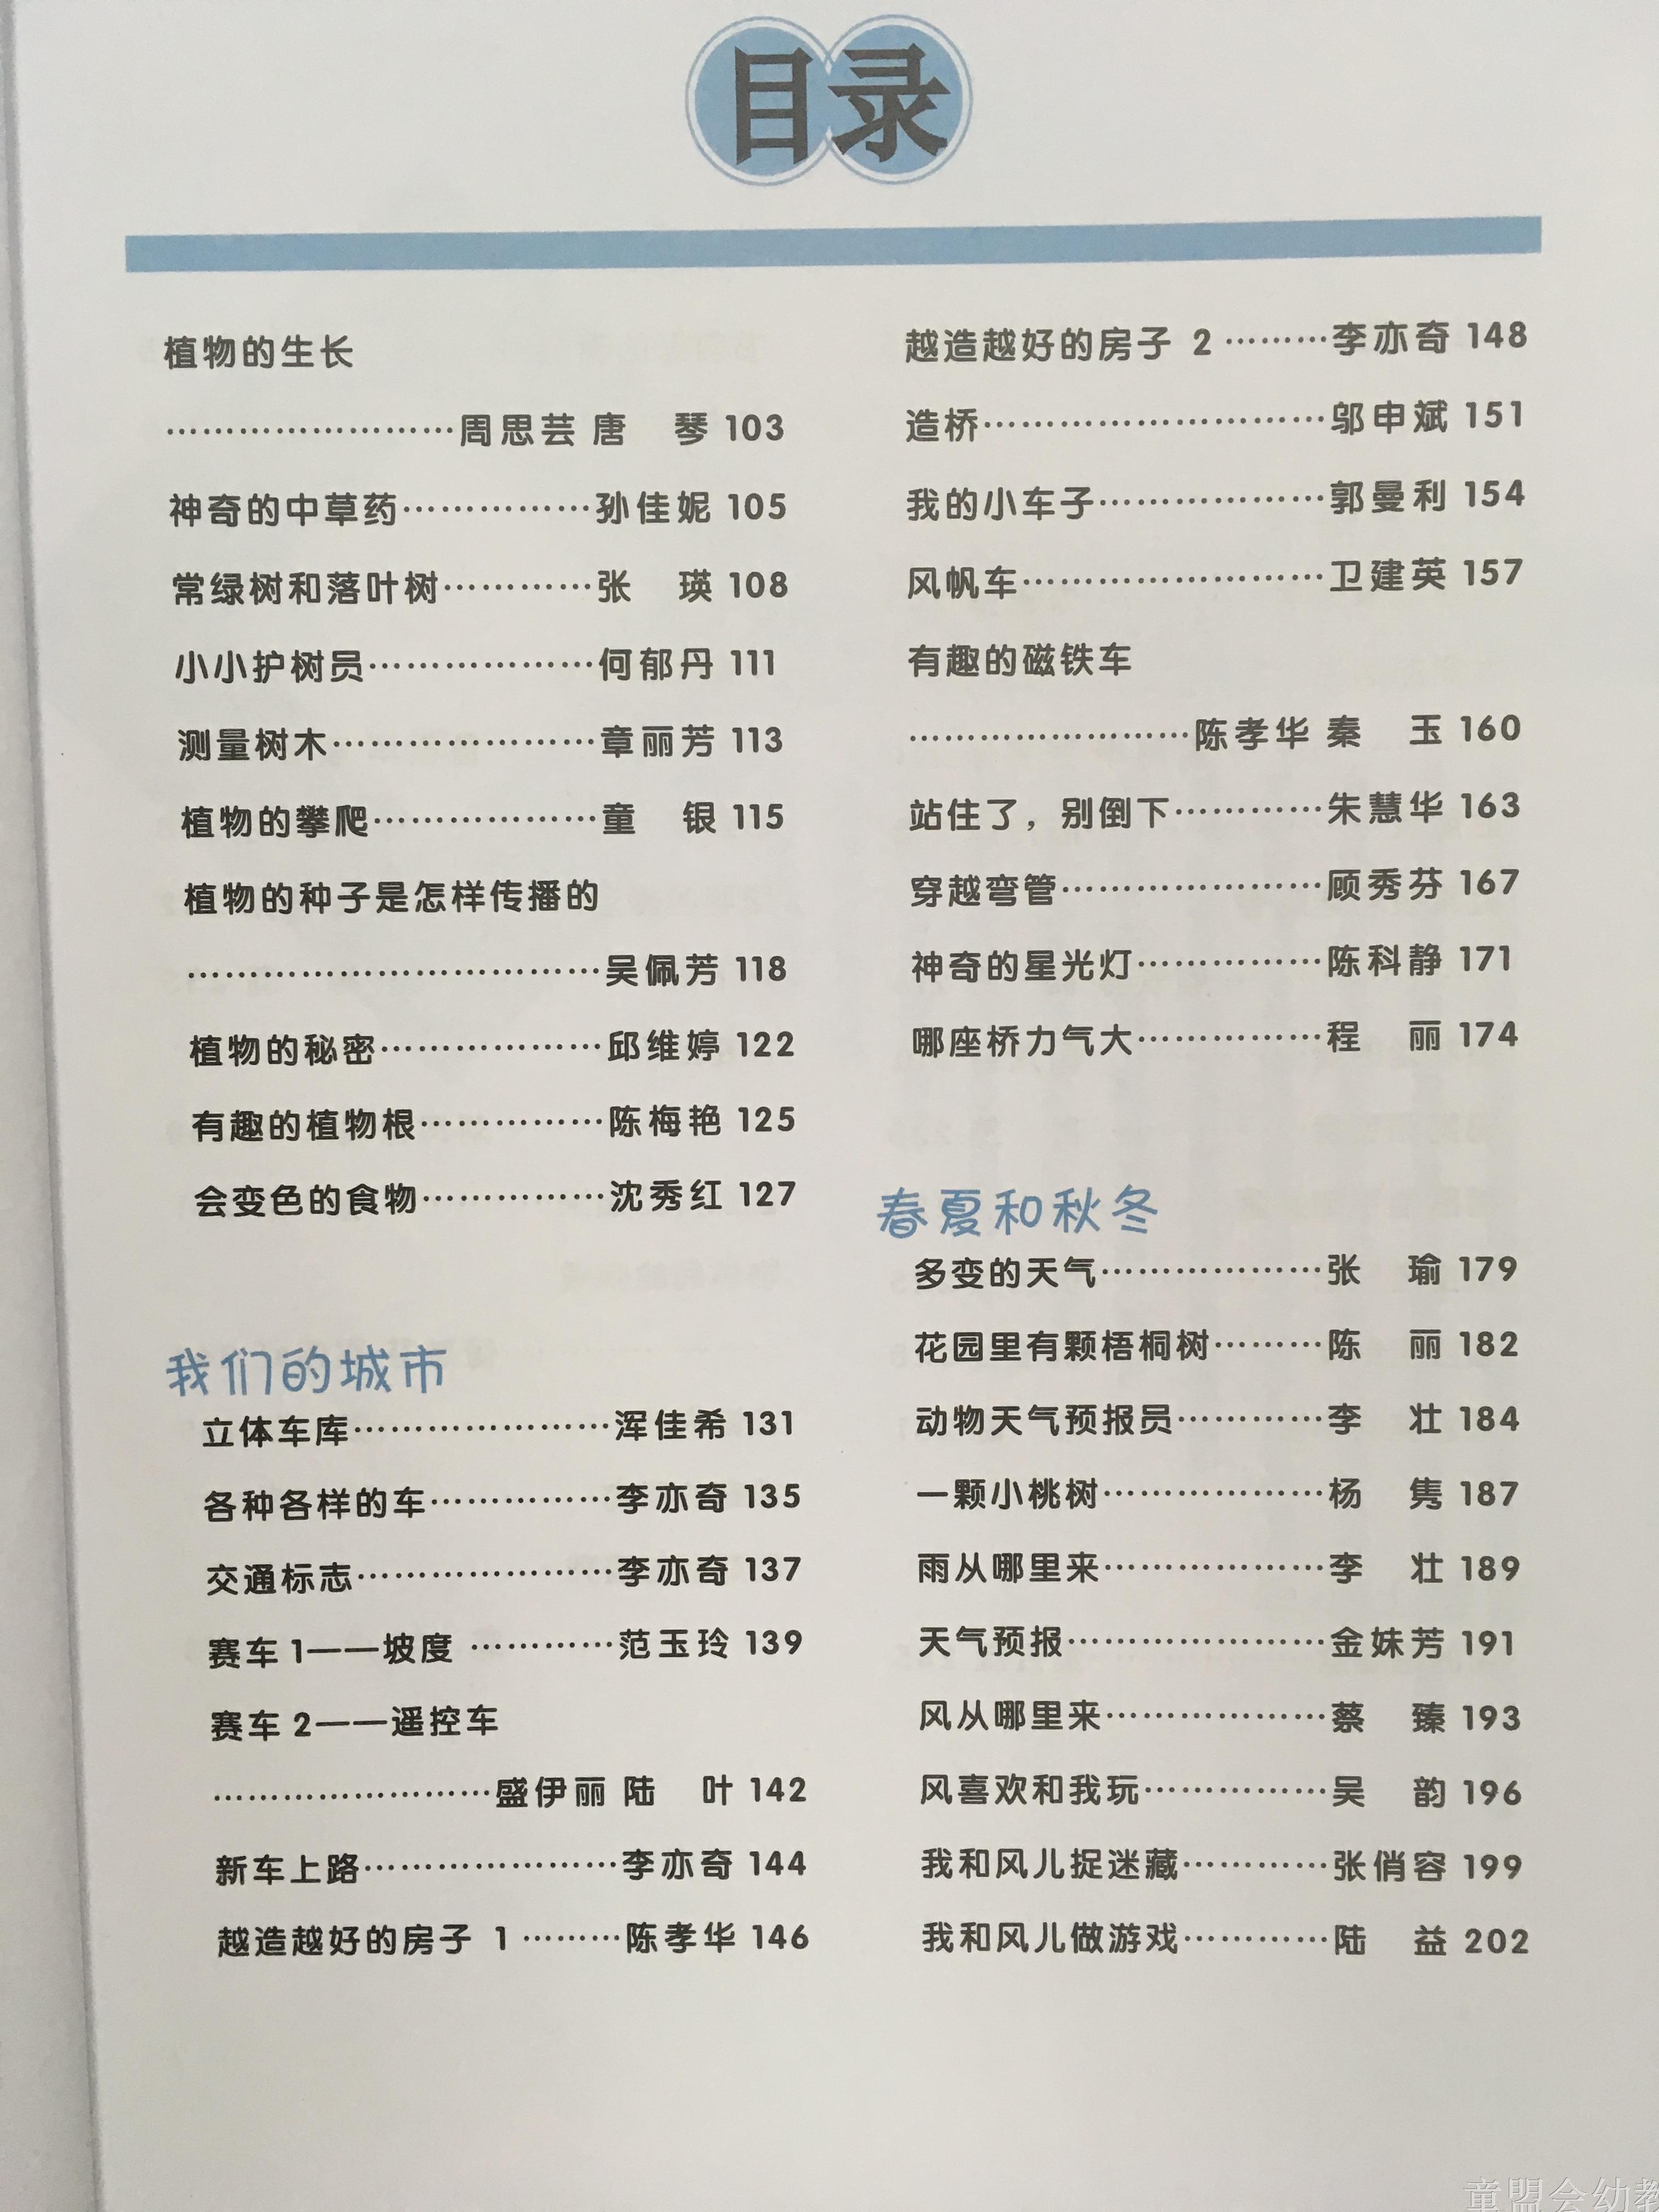 目录
植物的生长
························周思芸 唐　琴 103
神奇的中草药···············孙佳妮 105
常绿树和落叶树············张　瑛 108
小小护树员··················何郁丹 111
测量树木·····················章丽芳 113
植物的攀爬··················童　银 115
植物的种子是怎样传播的
·································吴佩芳 118
植物的秘密··················邱维婷 122
有趣的植物根···············陈梅艳 125
会变色的食物···············沈秀红 127
我们的城市
立体车库·····················浑佳希 131
各种各样的车···············李亦奇 135
交通标志·····················李亦奇 137
赛车 1——坡度 ············范玉玲 139
赛车 2——遥控车
·······················盛伊丽 陆　叶 142
新车上路·····················李亦奇 144
越造越好的房子 1 ·········陈孝华 146
越造越好的房子 2 ·········李亦奇 148
造桥···························邬申斌 151
我的小车子··················郭曼利 154
风帆车························卫建英 157
有趣的磁铁车
·······················陈孝华 秦　玉 160
站住了，别倒下············朱慧华 163
穿越弯管·····················顾秀芬 167
神奇的星光灯···············陈科静 171
哪座桥力气大···············程　丽 174
春夏和秋冬
多变的天气··················张　瑜 179
花园里有颗梧桐树·········陈　丽 182
动物天气预报员············李　壮 184
一颗小桃树··················杨　隽 187
雨从哪里来··················李　壮 189
天气预报·····················金妹芳 191
风从哪里来··················蔡　臻 193
风喜欢和我玩···············吴　韵 196
我和风儿捉迷藏············张俏容 199
我和风儿做游戏············陆　益 202
童盟会幼教